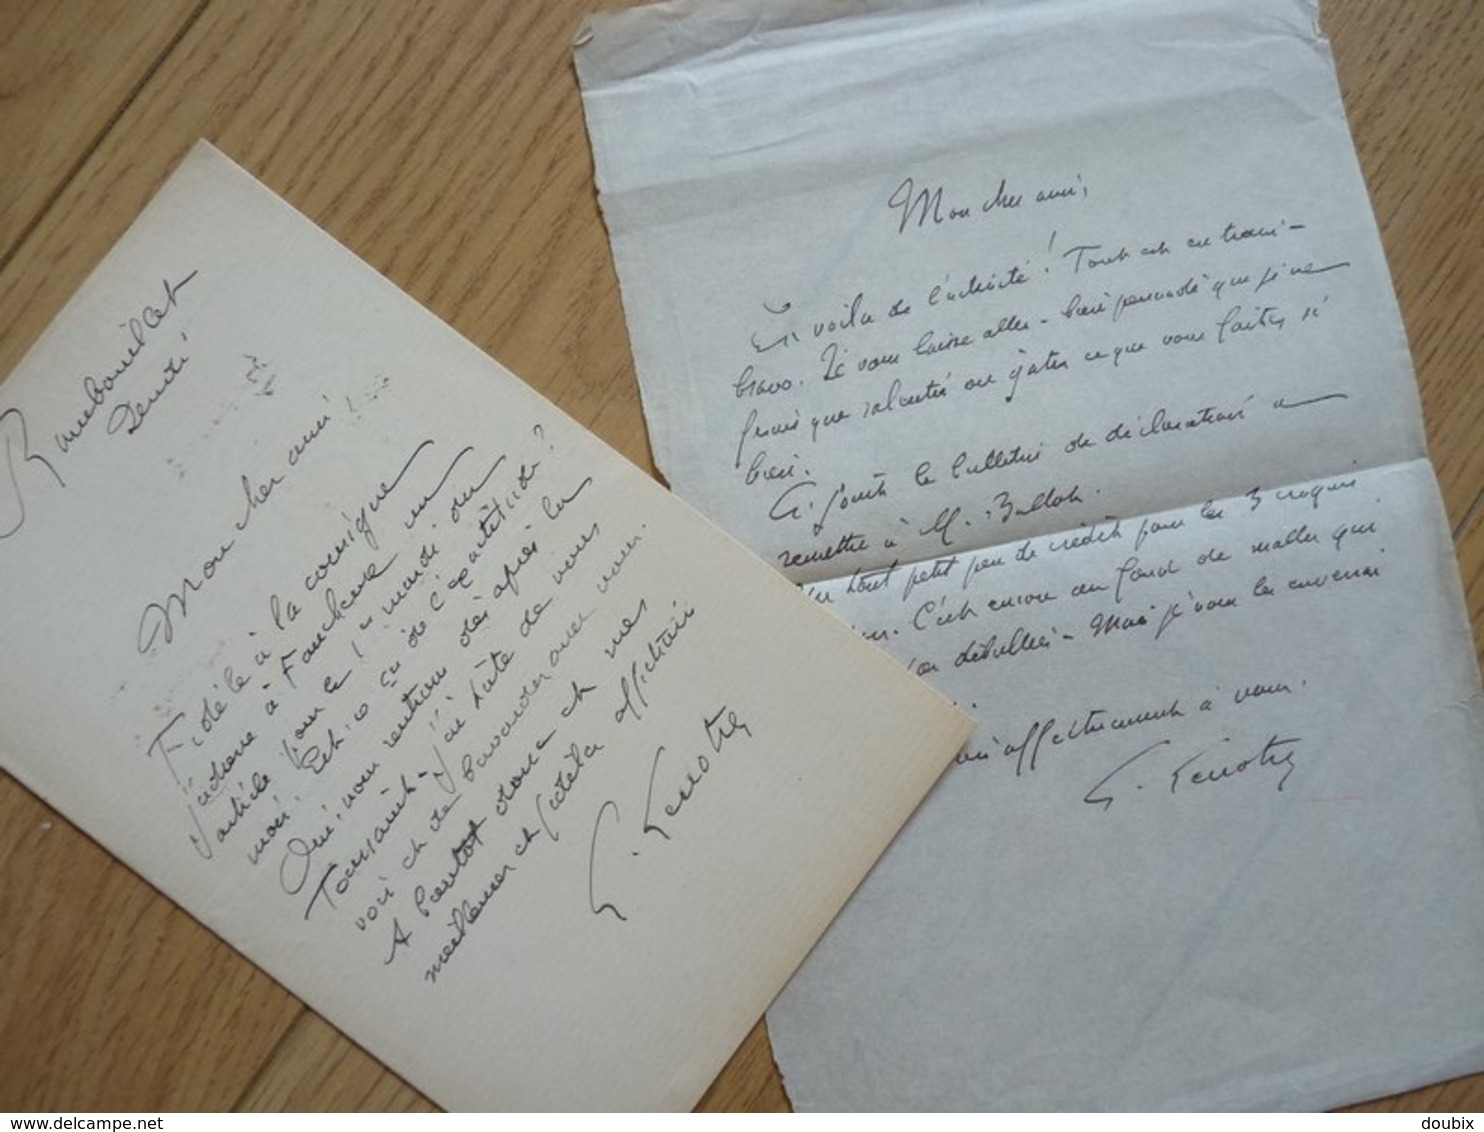 Rambouillet
Lundi
Mon cher ami
Fidèle à la consigne
j'adresse à Faucheux un
article pour le 1er mardi du
mois. Est-ce ça de l'exactitude?
Oui, nous rentrons dès après la
Toussaint. J'ai hâte de vous
voir et de bavarder avec vous.
A bientôt donc et mes
meilleures et fidèles affections
G. Lenotre
Mon cher ami,
En voilà de l'activité! Tout est en train -
bravo. Je vous laisse aller - bien persuadé que je ne
ferais que ralentir ou gâter ce que vous faites si
bien.
Ci joint le bulletin de déclaration à
remettre à M.
un tout petit peu de crédit pour les 3 croquis
C'est encore au fond de malles qui
déballées - Mais je vous les enverrai
affectueusement à vous.
G. Lenotre
www.delcampe.net
doubix